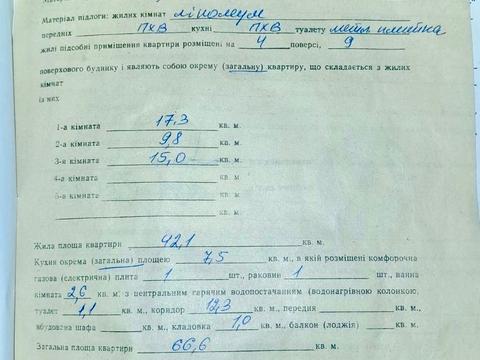 Матеріал підлоги: жилих кімнат лінолеум
передніх ПХВ кухні ПХВ туалету плитка
жилі підсобні приміщення квартири розміщені на 4 поверсі, 9
поверхового будинку і являють собою окрему (загальну) квартиру, що складається з жилих
кімнат
із них
1-а кімната 17,3 кв. м.
2-а кімната 9,8 кв. м.
3-я кімната 15,0 кв. м.
4-а кімната кв. м.
5-а кімната кв. м.
кв. м.
Жила площа квартири 42,1 кв. м.
Кухня окрема (загальна) площею 7,5 кв. м., в якій розміщені комфорочна
газова (електрична) плита 1 шт., раковин 1 шт., ванна
кімната 2,6 кв. м. з центральним гарячим водопостачанням (водонагрівною колонкою,
туалет 1,1 кв. м., коридор 12,3 кв. м., передня кв. м.,
вбудована шафа кв. м., кладовка 1,0 кв. м., балкон (лоджія) кв. м.
Загальна площа квартири 66,6 кв. м.